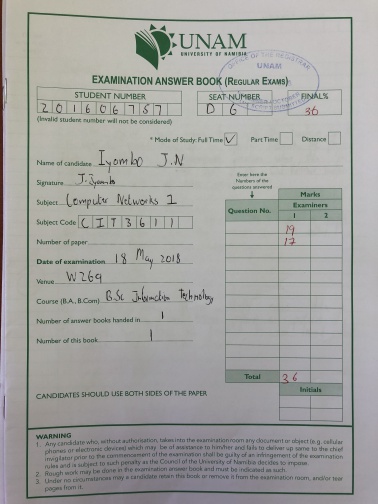 UNAM
UNIVERSITY OF NAMIBIA
OFFICE OF THE REGISTRAR
UNAM
EXAMINATION ANSWER BOOK (REGULAR EXAMS)
STUDENT NUMBER SEAT NUMBER FINAL%
201606757 D 6 36
(Invalid student number will not be considered)
* Mode of Study: Full Time ✓ Part Time Distance
Name of candidate Iyambo J.N
Signature J.Iyambo
Subject Computer Networks 1
Subject Code CIT3611
Number of paper
Date of examination 18 May 2018
Venue W269
Course (B.A., B.Com) B.Sc Information Technology
Number of answer books handed in 1
Number of this book 1
Enter here the
Numbers of the
questions answered
Marks
Question No. Examiners
1 2
19
17
Total 36
Initials
CANDIDATES SHOULD USE BOTH SIDES OF THE PAPER
WARNING
1. Any candidate who, without authorisation, takes into the examination room any document or object (e.g. cellular
phones or electronic devices) which may be of assistance to him/her and fails to deliver up same to the chief
invigilator prior to the commencement of the examination shall be guilty of an infringement of the examination
rules and is subject to such penalty as the Council of the University of Namibia decides to impose.
2. Rough work may be done in the examination answer book and must be indicated as such.
3. Under no circumstances may a candidate retain this book or remove it from the examination room, and/or tear
pages from it.